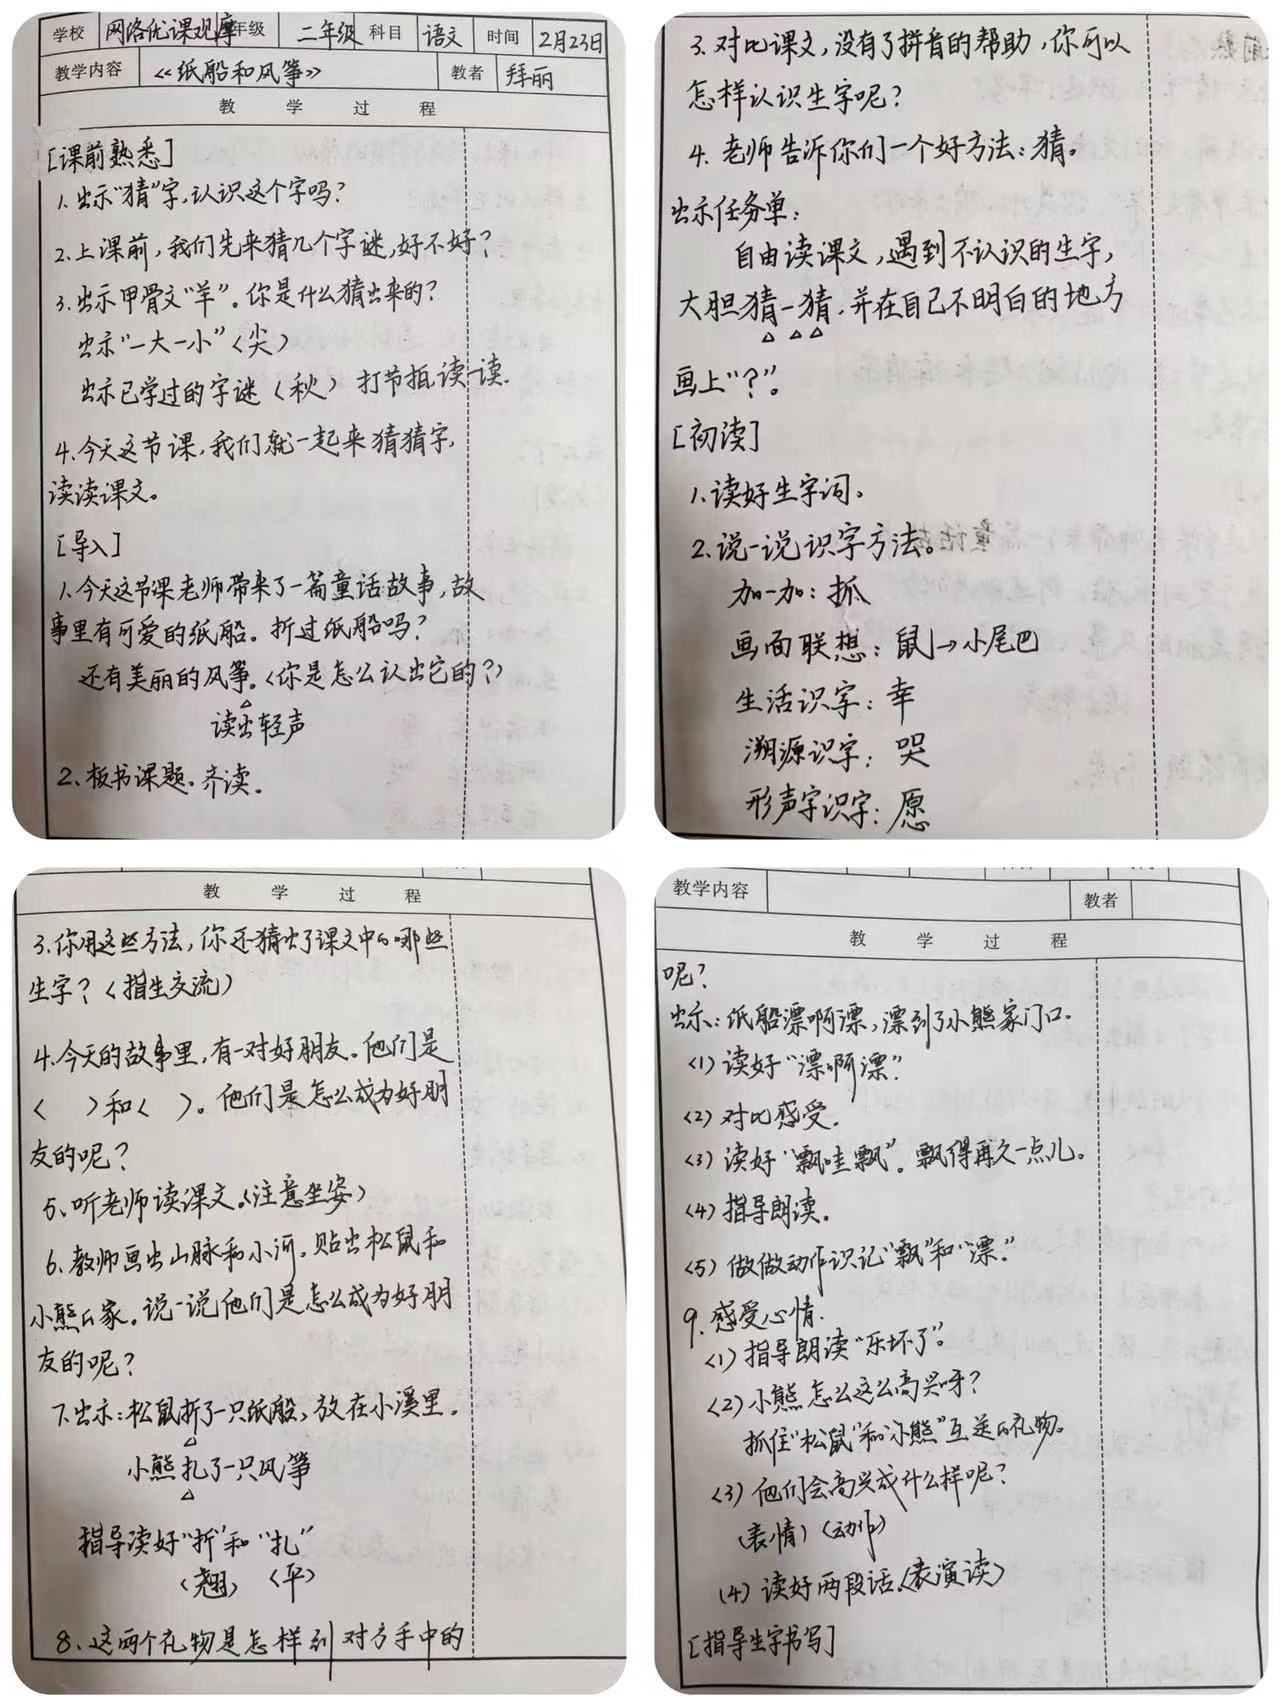 学校 网络优课观摩 年级 二年级 科目 语文 时间 2月23日
教学内容 《纸船和风筝》 教者 拜丽
教 学 过 程
[课前熟悉]
1. 出示“猜”字,认识这个字吗?
2.上课前,我们先来猜几个字谜,好不好?
3.出示甲骨文“羊”。你是什么猜出来的?
出示“一大一小”〈尖〉
出示已学过的字谜〈秋〉 打节拍读一读.
4.今天这节课,我们就一起来猜猜字,
读读课文。
[导入]
1.今天这节课老师带来了一篇童话故事,故
事里有可爱的纸船。折过纸船吗?
还有美丽的风筝。〈你是怎么认出它的?〉
读出轻声
2、板书课题、齐读。
3. 对比课文,没有了拼音的帮助,你可以
怎样认识生字呢?
4. 老师告诉你们一个好方法:猜。
出示任务单:
自由读课文,遇到不认识的生字,
大胆猜一猜,并在自己不明白的地方
画上“?”。
[初读]
1.读好生字词。
2.说一说识字方法。
加一加:抓
画面联想:鼠→小尾巴
生活识字:幸
溯源识字:哭
形声字识字:愿
教 学 过 程
3.你用这些方法,你还猜出了课文中的哪些
生字?〈指生交流〉
4.今天的故事里,有一对好朋友。他们是
〈 〉和〈 〉。他们是怎么成为好朋
友的呢?
5、听老师读课文。〈注意坐姿〉
6、教师画出山脉和小河,贴出松鼠和
小熊的家。说一说他们是怎么成为好朋
友的呢?
7.出示:松鼠折了一只纸船,放在小溪里。
小熊扎了一只风筝
指导读好“折”和“扎”
〈翘〉 〈平〉
8、这两个礼物是怎样到对方手中的
教学内容 教者
教 学 过 程
呢?
出示:纸船漂啊漂,漂到了小熊家门口.
〈1〉读好“漂啊漂”
〈2〉对比感受.
〈3〉读好“飘哇飘”。飘得再久一点儿。
〈4〉指导朗读。
〈5〉做做动作识记“飘”和“漂”
9.感受心情.
〈1〉指导朗读“乐坏了”。
〈2〉小熊怎么这么高兴呀?
抓住“松鼠”和“小熊”互送的礼物。
〈3〉他们会高兴成什么样呢?
〈表情〉〈动作〉
(4) 读好两段话.〈表演读〉
[指导生字书写]